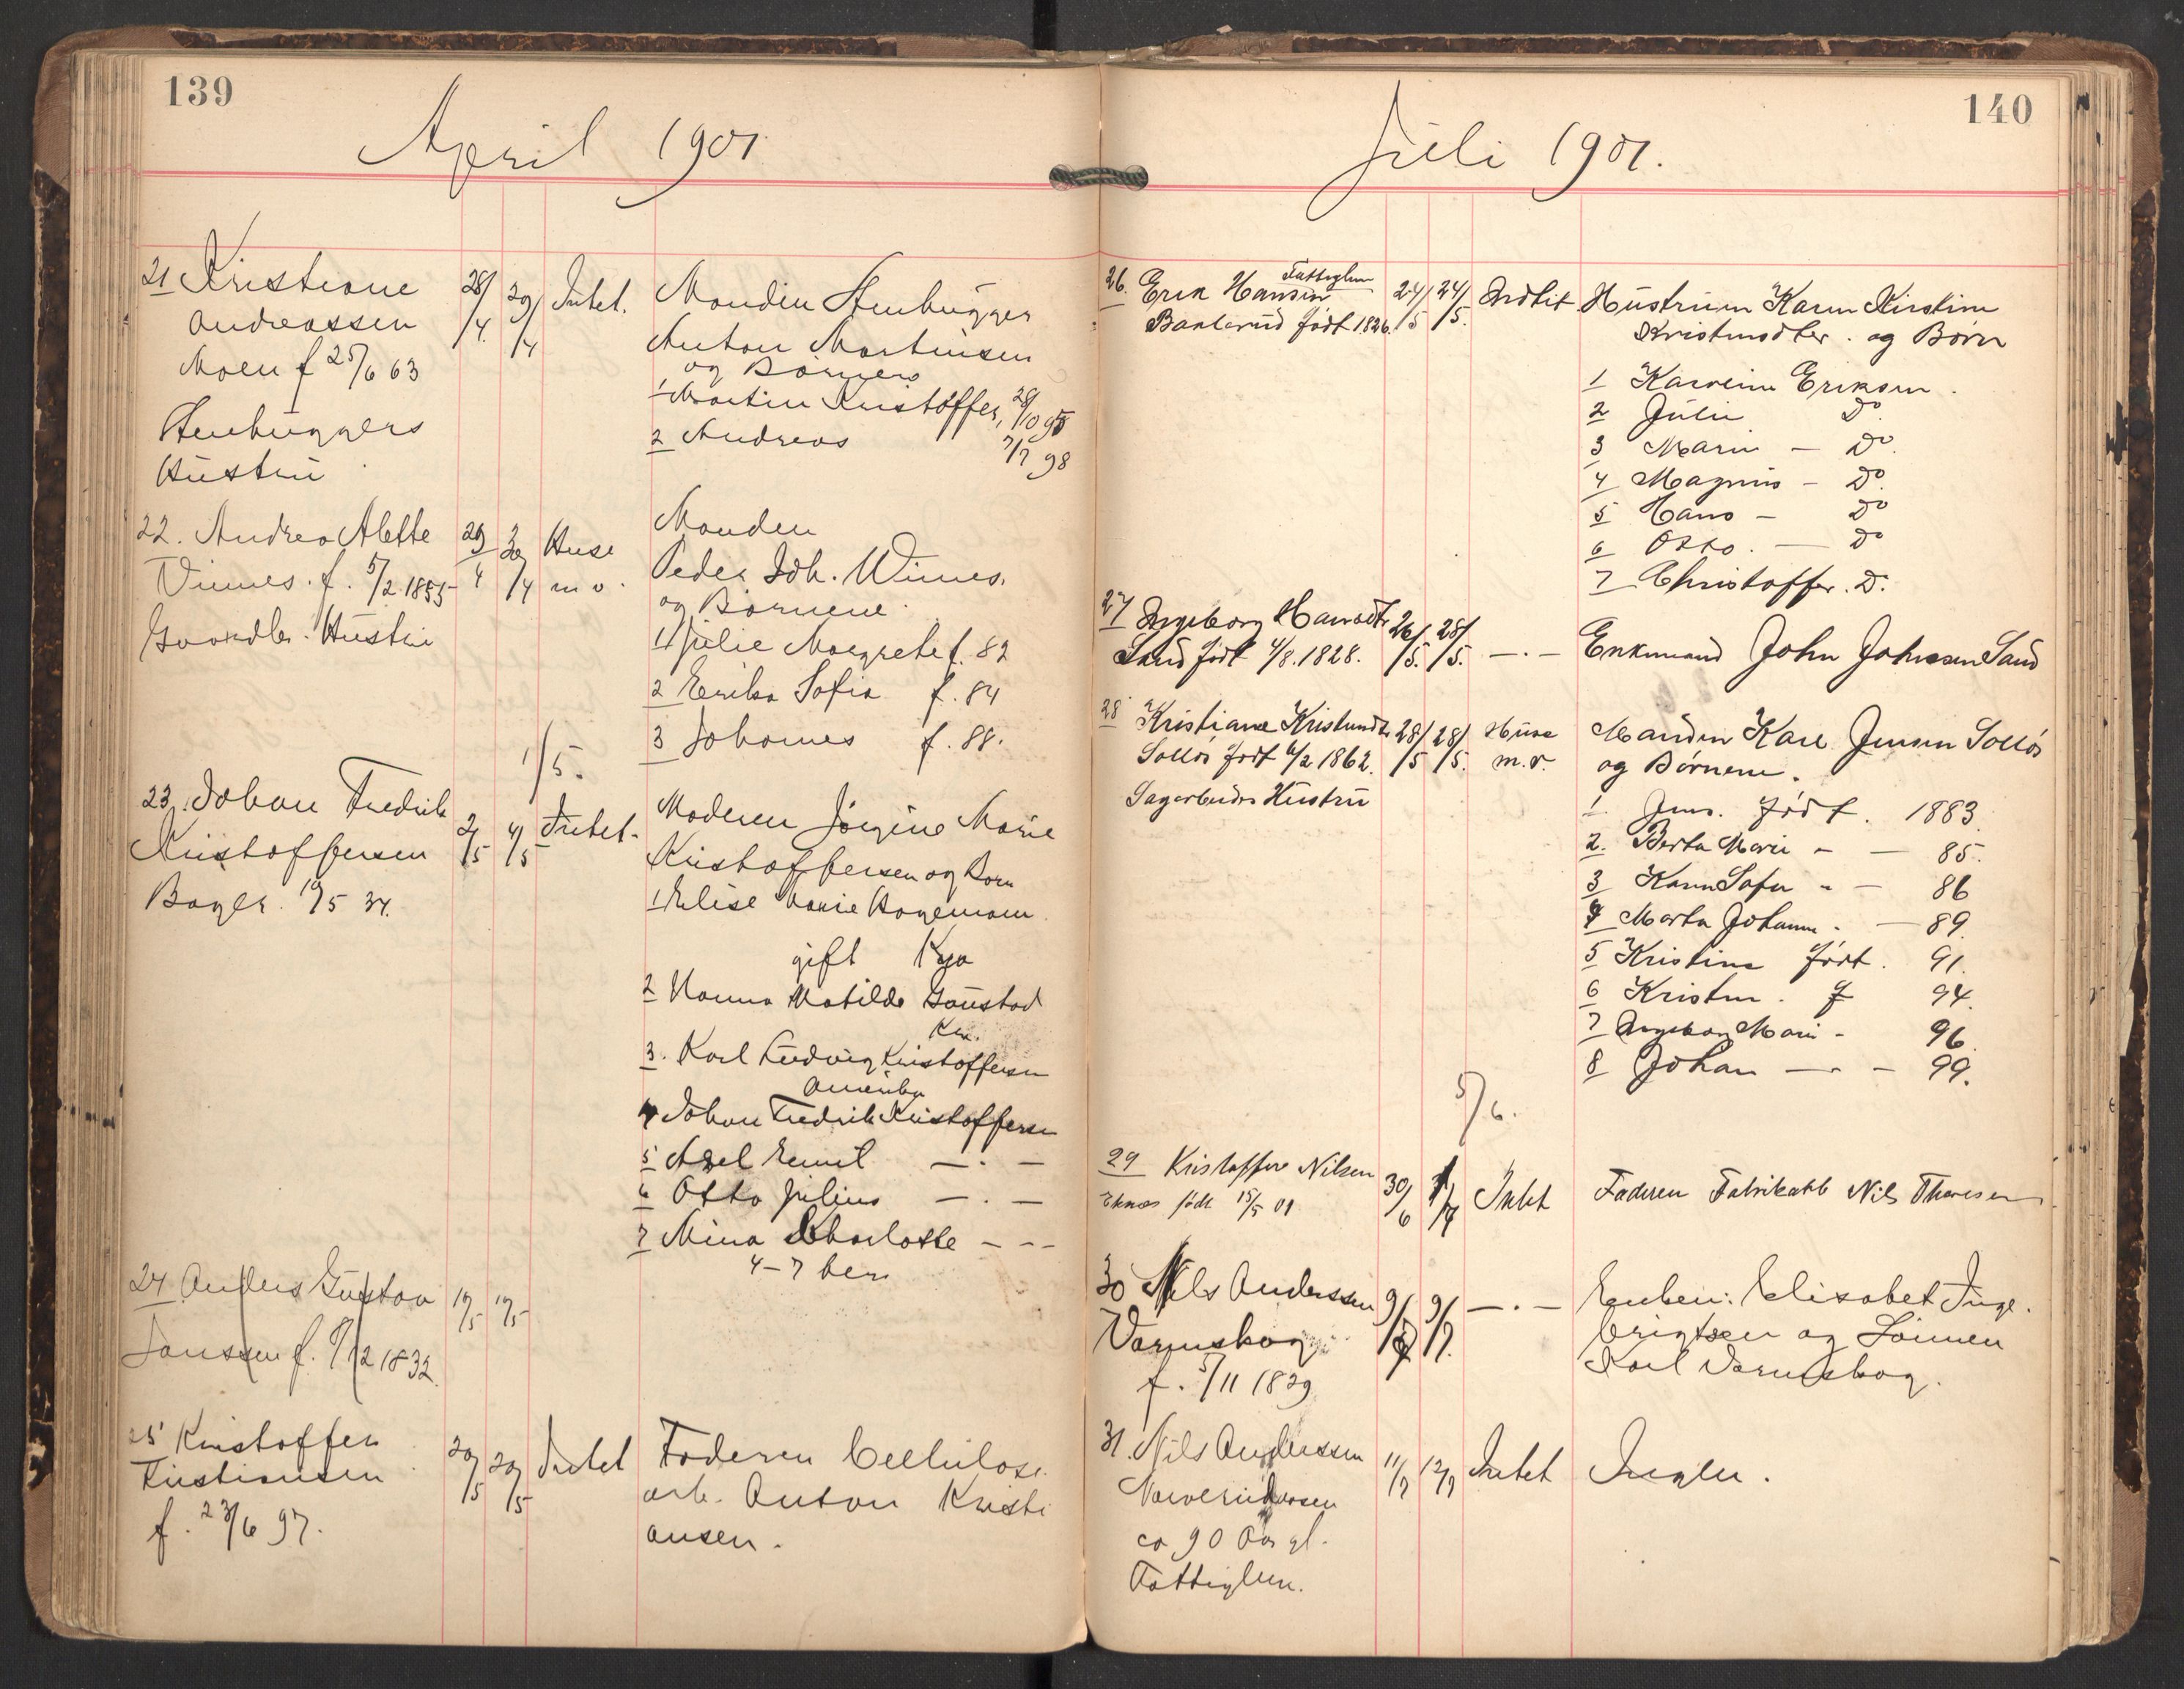 139
April 1901
21 Kristiane 28/4. 29/4 Intet. Manden Stenhugger
Andreassen Anton Martinsen
Moen f 25/6 63 og Børnene
1 Martin Kristoffer, 28/10 95
Stenhuggers 2 Andreas 7/7 98
Hustru
22. Andrea Alette 29/4 30/4 Huse m v. Manden
Vinnes. f. 5/2 1855 Peder Joh. Winnes.
Gaardbr. Hustru og Børnene.
1 Julie Margrete f. 82
2 Erika Sofie f. 84
3 Johannes f. 88.
1/5.
23. Johan Fredrik 2/5 4/5 Intet. Moderen Jørgine Marie
Kristoffersen Kristoffersen og Børn
Bager. 19/5 34. 1 Elise Marie Hagemann.
gift Kra
2 Hanna Matilde Gaustad
Kra.
3. Karl Ludvig Kristoffersen
Amerika
4 Johan Fredrik Kristoffersen
5 Axel Emil — . —
6 Otto Julius — . —
7 Mina Charlotte — - -
4-7 her
24 Anders Gustav 19/5 19/5
Janssen f. 9/12 1832.
25 Kristoffer 20/5 20/5 Intet Faderen Cellulose
Kristiansen arb. Anton Kristi
f. 23/6 97. ansen.
140
Juli 1901.
26. Erik Hansen Fattiglem 24/5 24/5. Indtit Hustruen Karen Kirstine
Bakkerud født 1826. Kristensdter. og Børn
1 Karoline Eriksen.
2 Julie Do.
3 Marie — Do.
4 Magnus — Do.
5 Hans — Do
6 Otto. — Do
7 Christoffer. D.
27 Ingeborg Hansdtr 26/5. 28/5. —.— Enkemand John Johnsen Sand
Sand født 4/8. 1828.
28 Kristiane Kristensdtr 28/5 28/5. Huse m.v. Manden Karl Jensen Solløs
Solløs født 6/2 1862. og Børnene.
Sagarbeiders Hustru
1. Jens. født. 1883
2. Berta Marie - — 85.
3 Karen Sofie - — 86
4 Marta Johanne. — 89.
5 Kristine født. 91.
6 Kristen. f 94.
7 Ingeborg Marie - 96.
8 Johan —.— 99.
5/6.
29 Kristoffer Nilsen 30/6 1/7 Intet Faderen Fabrikarb Nils Thoresen
Eknes født 15/5 01
30 Nils Anderssen 9/7 9/7. —.— Enken: Elisabet Inge.
Varmskog brigtsen og Sønnen
f. 5/11 1829 Karl Varmskog.
31. Nils Anderssen 11/7 12/7 Intet Ingen.
ca 90 Aar gl.
Fattiglem.